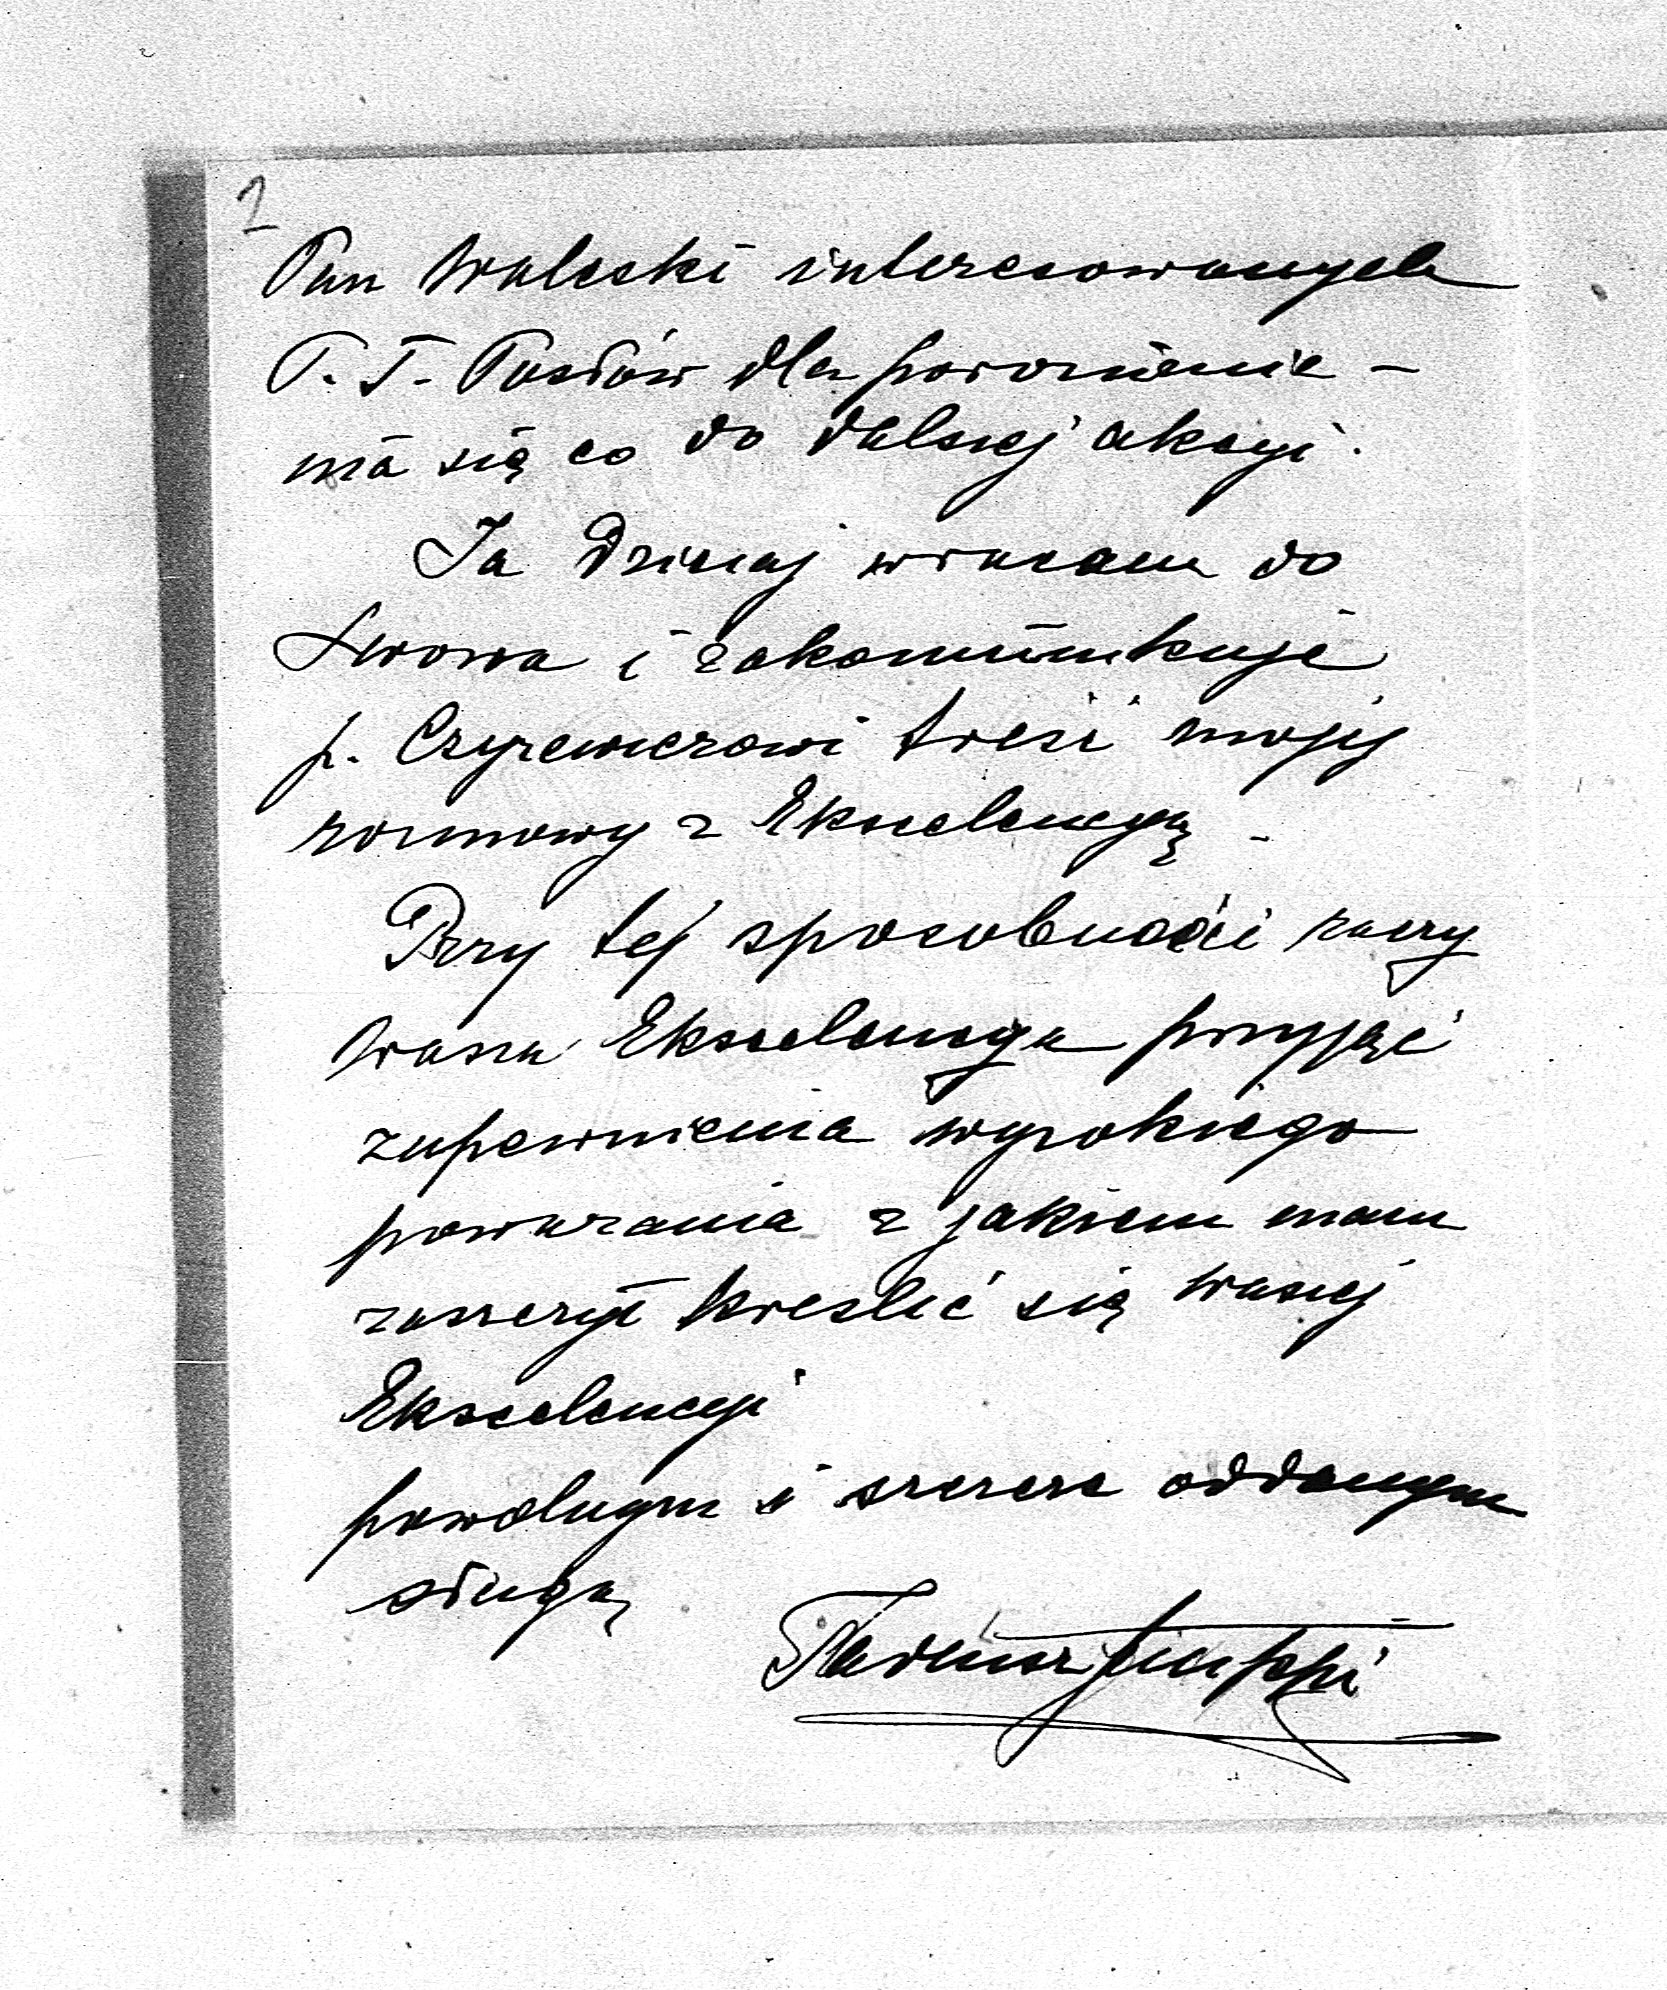 2
Pan Waleski interesowanych
P. T. Posłów dla porozumie-
nia się co do dalszej akcyi.
Ja dzisiaj wracam do
Lwowa i zakomunikuję
p. Czyżewiczowi treść mojej
rozmowy z Ekscelencyą.
Przy tej sposobności raczy
Wasza Ekscelencya przyjąć
zapewnienia wysokiego
poważania z jakiem mam
zaszczyt kreslić się Waszej
Ekscelencyi
powolnym i szczerze oddanym
sługą
Tadeusz